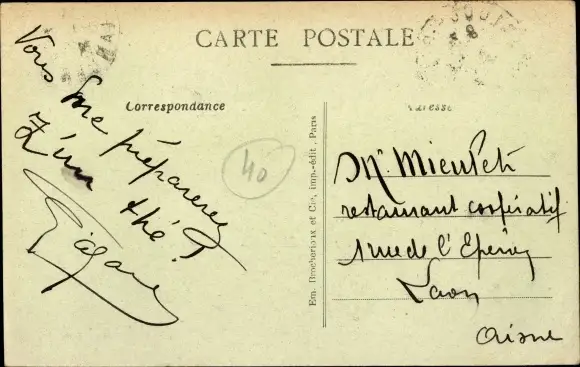 CARTE POSTALE
Correspondance
Adresse
Vous me préparerez
un thé !
40
Em. et Cie, imp.-édit., Paris
Mr.
restaurant coopératif
1 rue de l'
Laon
Aisne